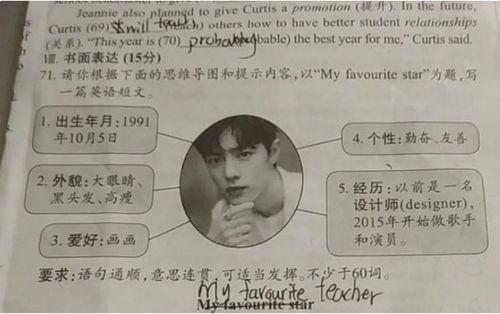 Jeannie also planned to give Curtis a promotion (提升). In the future,
Curtis (69) will teach (teach) others how to have better student relationships
(关系). "This year is (70) probably (probable) the best year for me," Curtis said.
Ⅷ. 书面表达 (15分)
71. 请你根据下面的思维导图和提示内容,以"My favourite star"为题,写
一篇英语短文。
1. 出生年月:1991
年10月5日
2. 外貌:大眼睛、
黑头发、高瘦
3. 爱好:画画
4. 个性:勤奋、友善
5. 经历:以前是一名
设计师(designer),
2015年开始做歌手
和演员。
要求:语句通顺,意思连贯,可适当发挥。不少于60词。
My favourite teacher
My favourite star